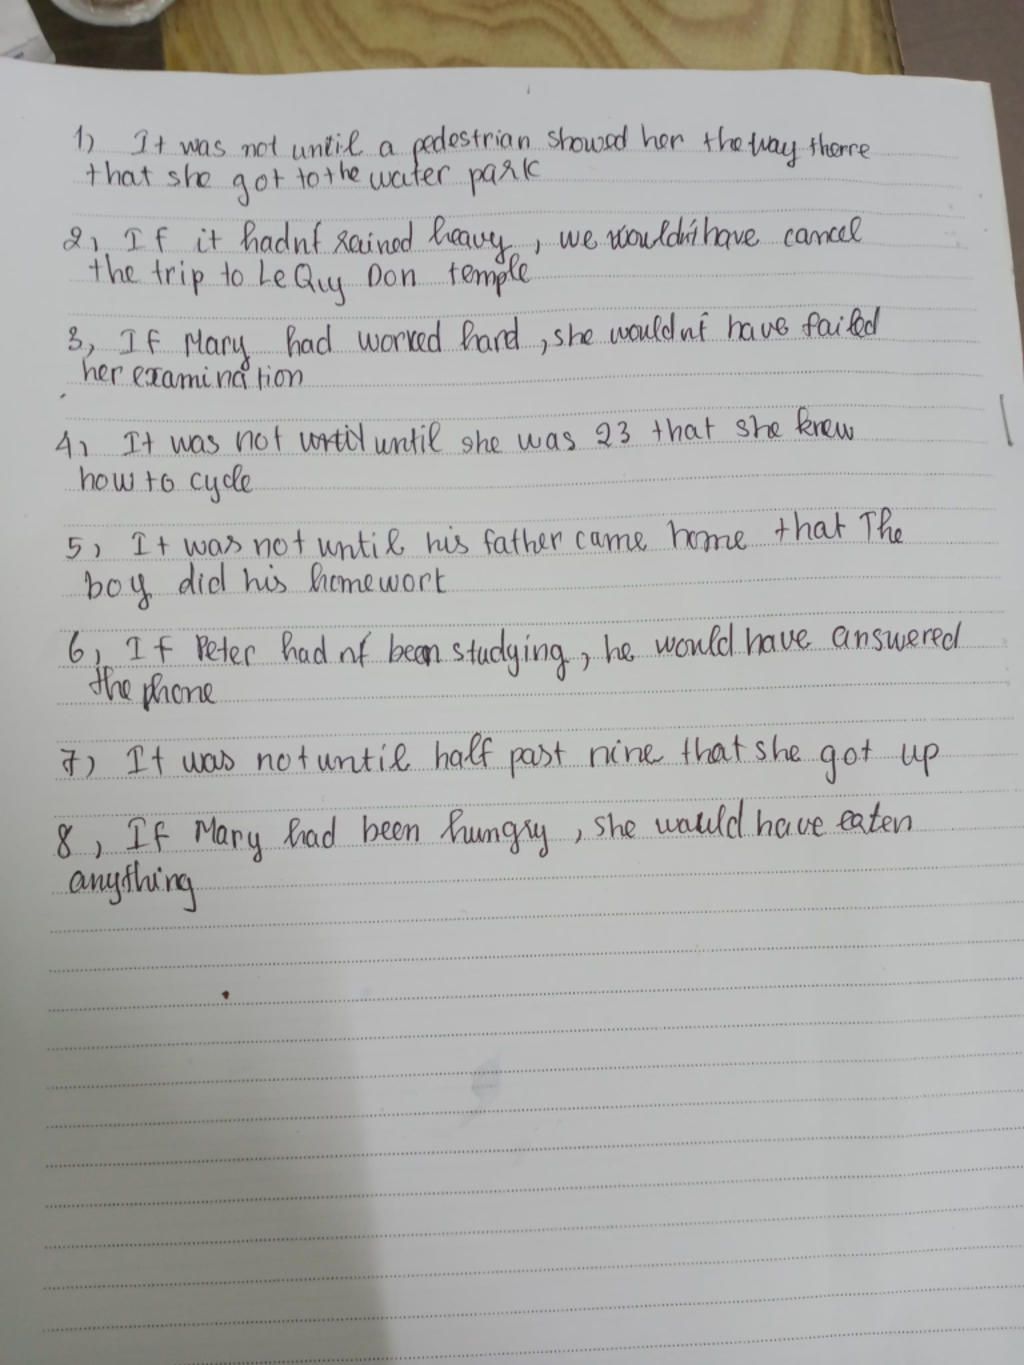 1) It was not until a pedestrian showed her the way therre
that she got to the water park
2, If it hadn't rained heavy, we wouldn't have cancel
the trip to Le Quy Don temple
3, If Mary had worked hard, she wouldn't have failed
her examination
4, It was not until she was 23 that she knew
how to cycle
5, It was not until his father came home that The
boy did his homewort
6, If Peter hadn't been studying, he would have answered
the phone
7) It was not until half past nine that she got up
8, If Mary had been hungry, she would have eaten
anything